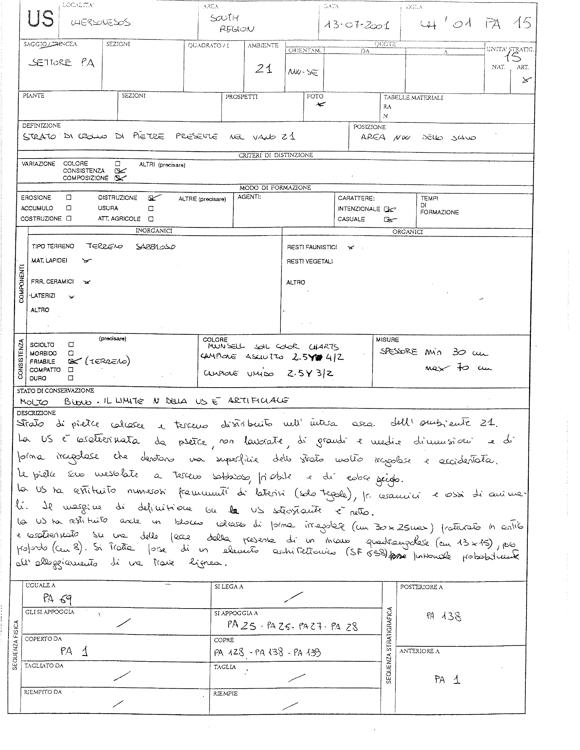 US
LOCALITA'
CHERSONESOS
AREA
SOUTH
REGION
DATA
13-07-2001
SIGLA
CH'01 PA 15
SAGGIO/TRINCEA
SETTORE PA
SEZIONI
QUADRATO/I
AMBIENTE
21
ORIENTAM.
NW-SE
QUOTE
DA
A
UNITA' STRATIG.
15
NAT. ART.
PIANTE
SEZIONI
PROSPETTI
FOTO
TABELLE MATERIALI
RA
N
DEFINIZIONE
STRATO DI CROLLO DI PIETRE PRESENTE NEL VANO 21
POSIZIONE
AREA NW DELLO SCAVO
CRITERI DI DISTINZIONE
VARIAZIONE COLORE
CONSISTENZA
COMPOSIZIONE
ALTRI (precisare)
MODO DI FORMAZIONE
EROSIONE
ACCUMULO
COSTRUZIONE
DISTRUZIONE
USURA
ATT. AGRICOLE
ALTRE (precisare)
AGENTI:
CARATTERE:
INTENZIONALE
CASUALE
TEMPI
DI
FORMAZIONE
COMPONENTI
INORGANICI
TIPO TERRENO TERRENO SABBIOSO
MAT. LAPIDEI
FRR. CERAMICI
LATERIZI
ALTRO
ORGANICI
RESTI FAUNISTICI
RESTI VEGETALI
ALTRO
CONSISTENZA
(precisare)
SCIOLTO
MORBIDO
FRIABILE (TERRENO)
COMPATTO
DURO
COLORE
MUNSELL SOIL COLOR CHARTS
CAMPIONE ASCIUTTO 2.5Y 4/2
CAMPIONE UMIDO 2.5Y 3/2
MISURE
SPESSORE min 30 cm
max 70 cm
STATO DI CONSERVAZIONE
MOLTO BUONO. IL LIMITE N DELLA US È ARTIFICIALE
DESCRIZIONE
Strato di pietre calcaree e terreno distribuito nell'intera area dell'ambiente 21.
La US è caratterizzata da pietre, non lavorate, di grandi e medie dimensioni e di
forma irregolare che denotano una superficie dello strato molto irregolare e accidentata.
Le pietre sono mescolate a terreno sabbioso, friabile e di colore grigio.
La US ha restituito numerosi frammenti di laterizi (solo tegole), fr. ceramici e ossi di anima-
li. Il margine di definizione con la US sottostante è netto.
La US ha restituito anche un blocco calcareo di forma irregolare (cm 30x25max) fratturato in antico
e caratterizzato su una delle facce dalla presenza di un incavo quadrangolare (cm 13x15), poco
profondo (cm 8). Si tratta forse di un elemento architettonico (SF 658) funzionale probabilmente
all'alloggiamento di una trave lignea.
SEQUENZA FISICA
UGUALE A
PA 69
SI LEGA A
GLI SI APPOGGIA
SI APPOGGIA A
PA 25 - PA 26 - PA 27 - PA 28
COPERTO DA
PA 1
COPRE
PA 128 - PA 138 - PA 139
TAGLIATO DA
TAGLIA
RIEMPITO DA
RIEMPIE
SEQUENZA STRATIGRAFICA
POSTERIORE A
PA 138
ANTERIORE A
PA 1